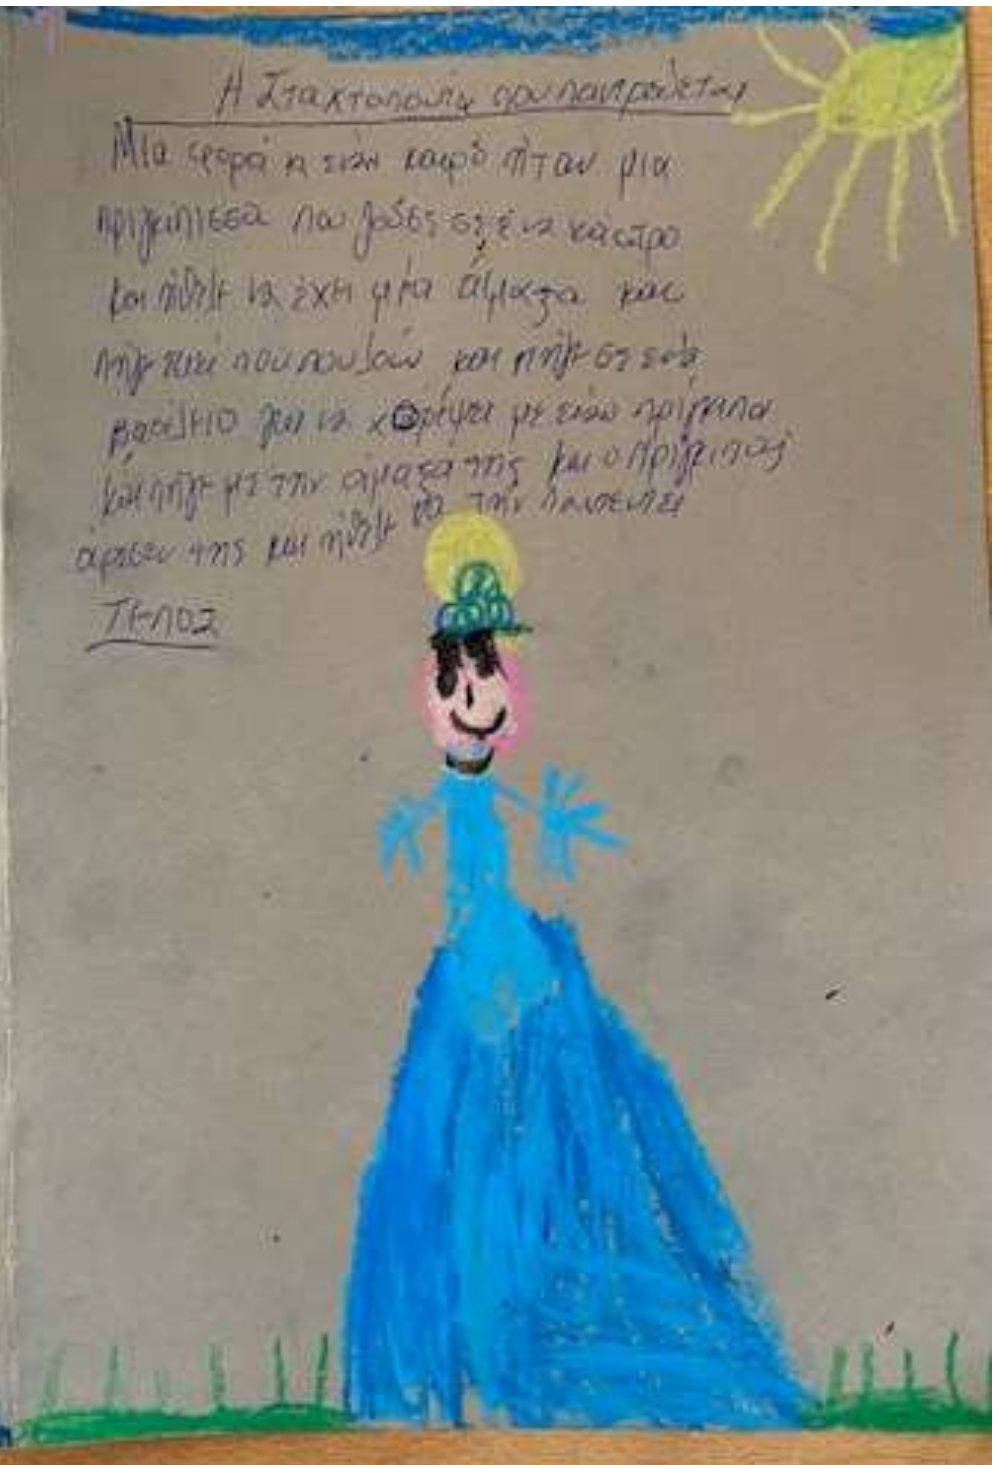 Η Σταχτοπούτα που παντρεύεται
Μια φορά κ έναν καιρό ήταν μια
πριγκίπισσα που ζούσε σε ένα κάστρο
και ήθελε να έχει μια άμαξα και
πήγε εκεί που που και πήγε σε ένα
βασίλειο για να χορέψει με έναν πρίγκιπα
και πήγε με την άμαξα της και ο πρίγκιπας
άρεσεν της και ήθελε να την παντρευτεί
ΤΕΛΟΣ